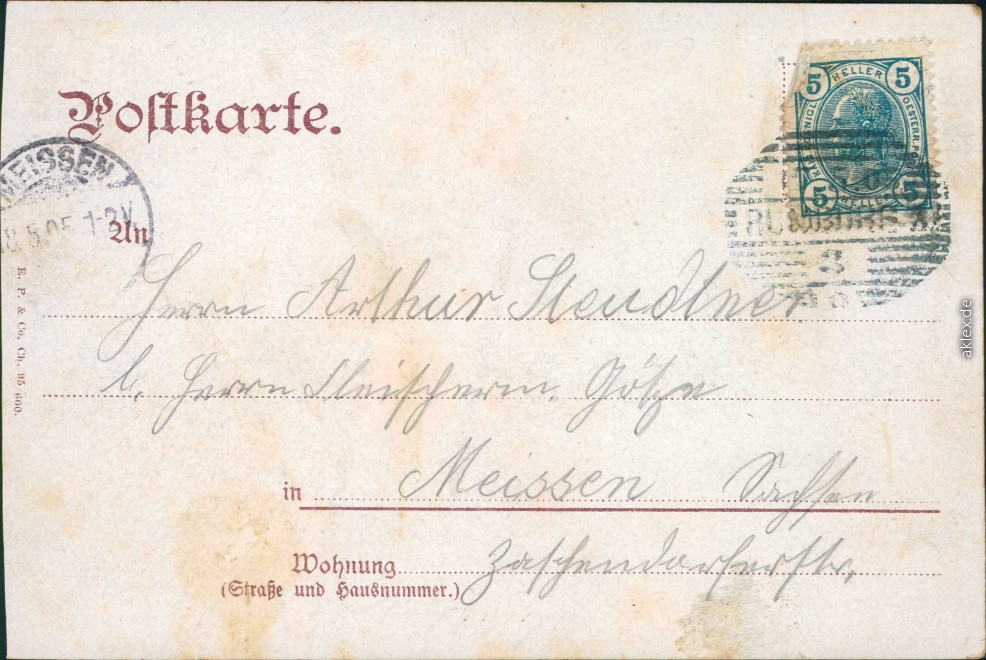 Postkarte.
5 HELLER 5
5 HELLER 5
MEISSEN
8.5.05. 1-2V
An
Herrn Arthur Steudtner
b. Herrn Fleischerm. Götze
in Meissen Sachsen
Wohnung Zaschendorferstr.
(Straße und Hausnummer.)
E. P. & Co. Ch. 95 600.
aklex.de